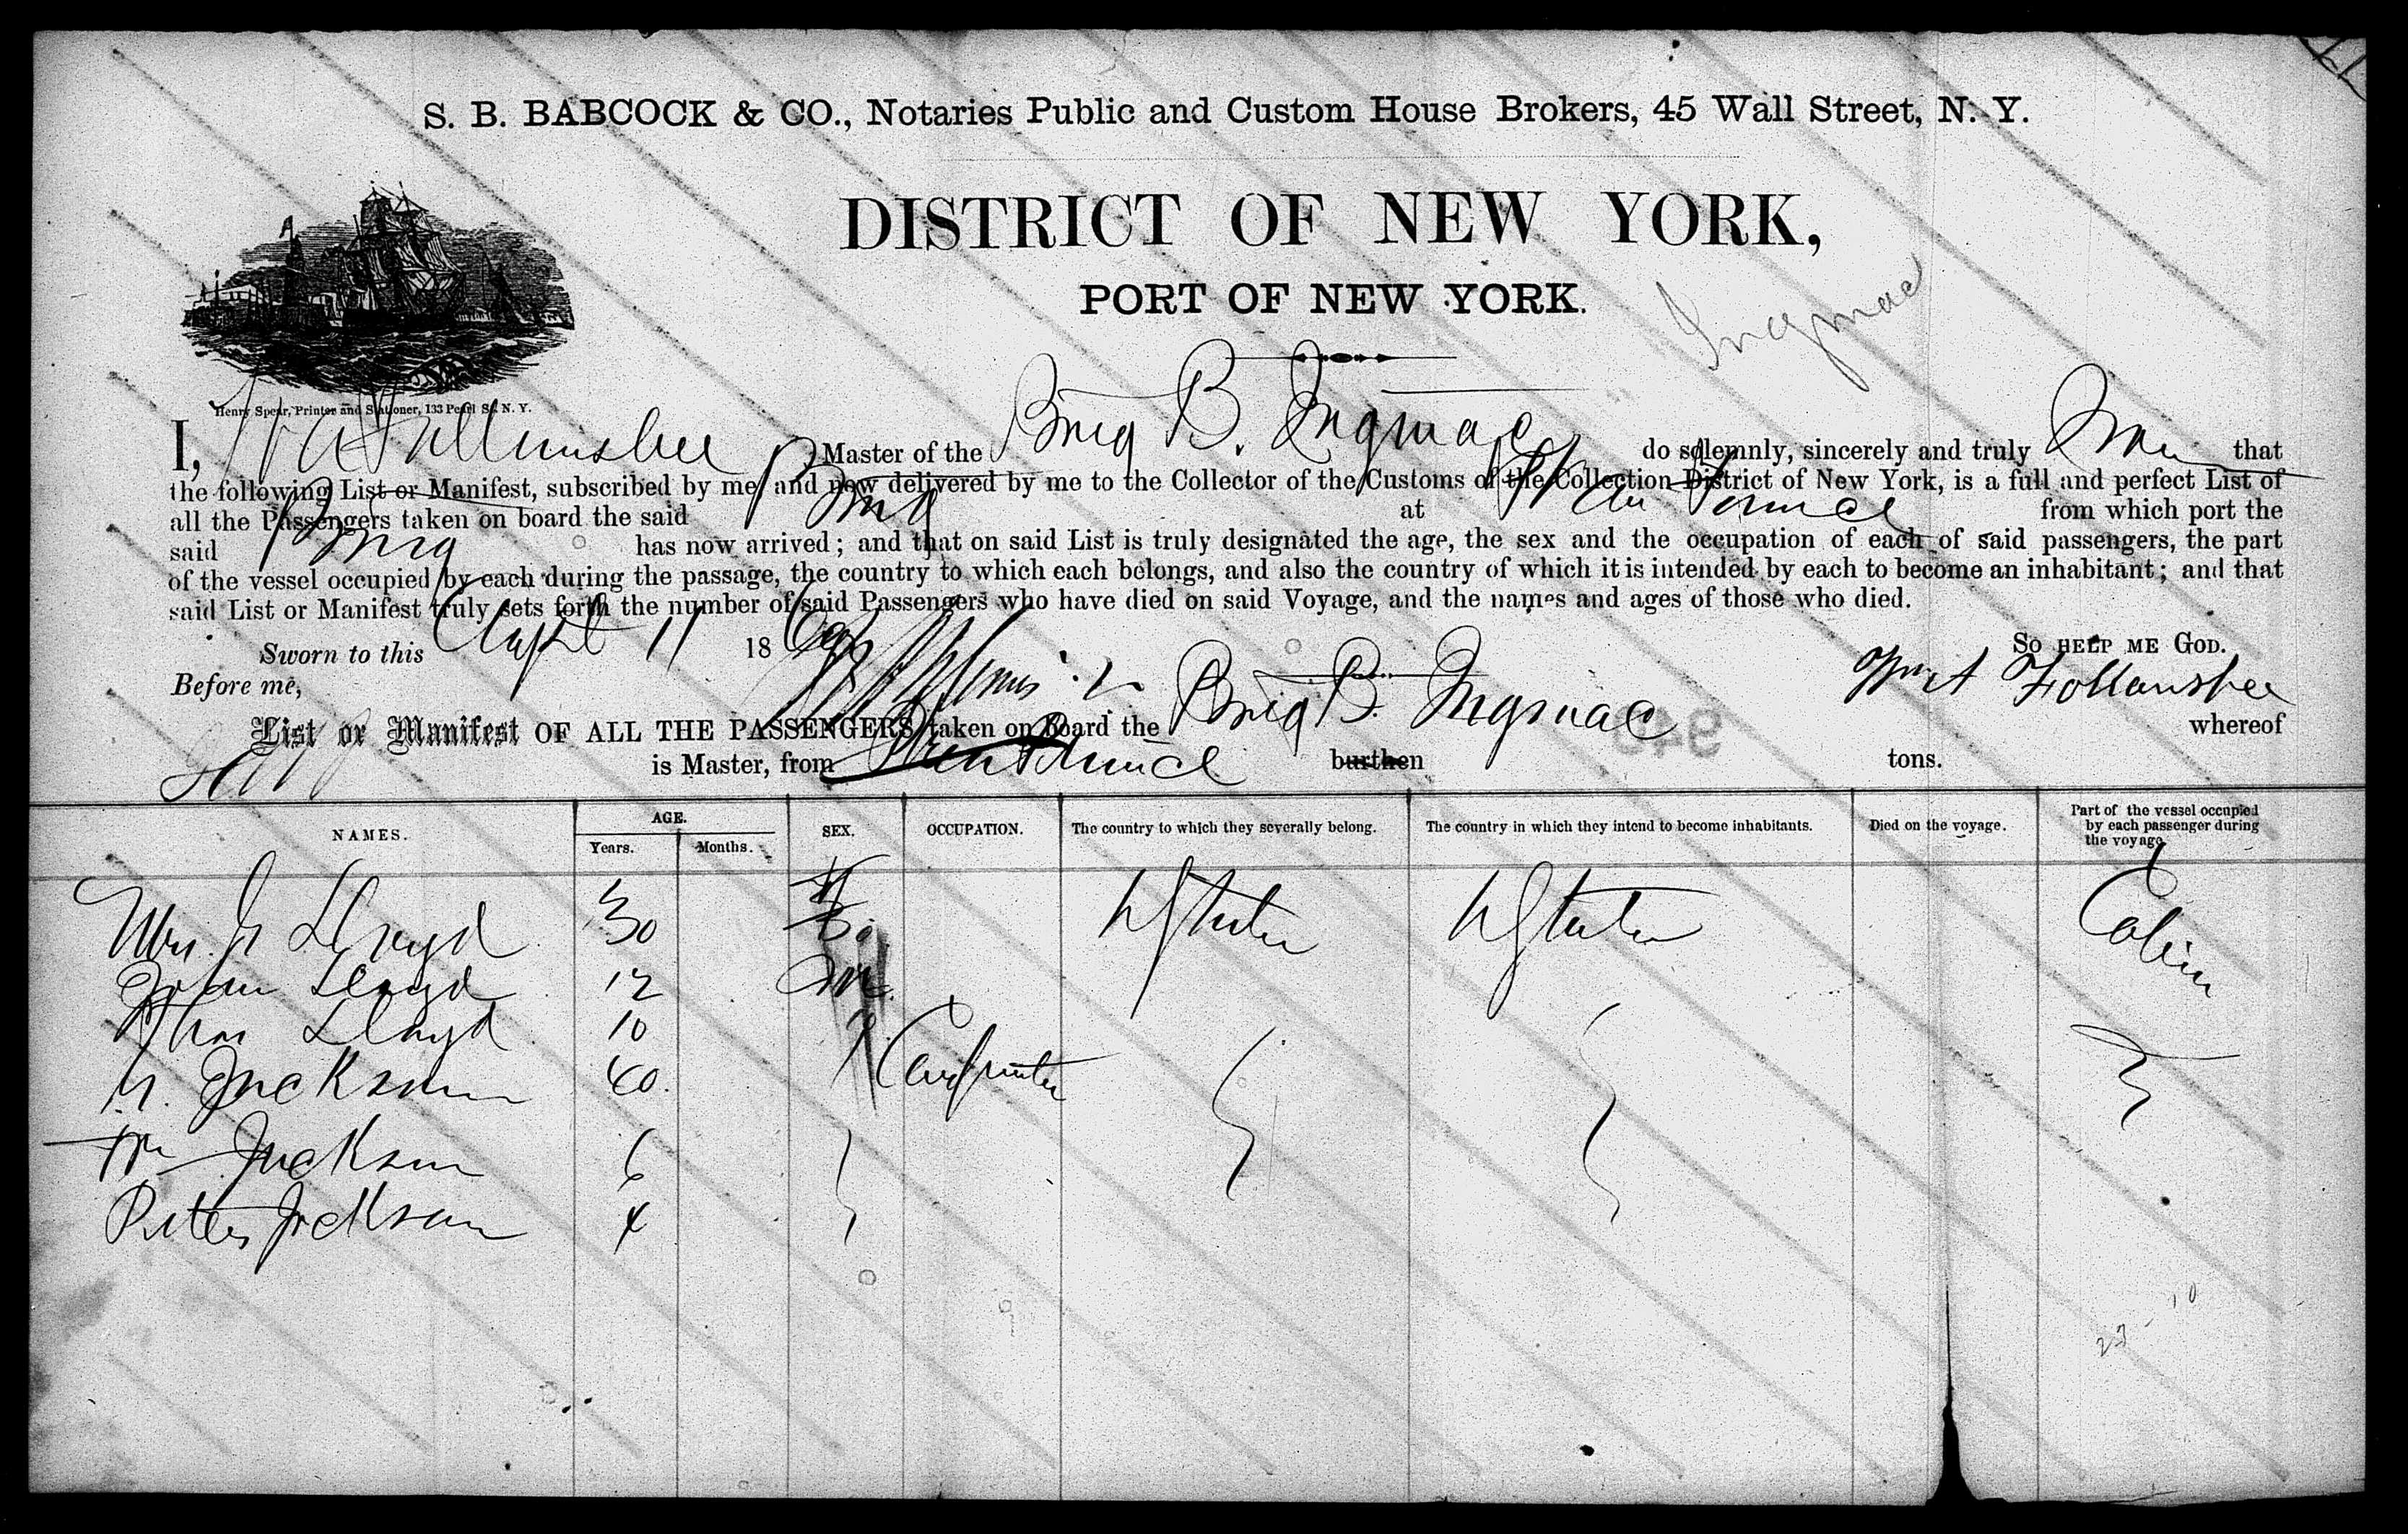 S. B. BABCOCK & CO., Notaries Public and Custom House Brokers, 45 Wall Street, N. Y.
DISTRICT OF NEW YORK,
PORT OF NEW YORK.
Ingmac
Henry Spear, Printer and Stationer, 133 Pearl St. N. Y.
I, W A Follansbee Master of the Brig B. Ingmac do solemnly, sincerely and truly swear that
the following List or Manifest, subscribed by me, and now delivered by me to the Collector of the Customs of the Collection District of New York, is a full and perfect List of
all the Passengers taken on board the said Brig at Port au Prince from which port the
said Brig has now arrived; and that on said List is truly designated the age, the sex and the occupation of each of said passengers, the part
of the vessel occupied by each during the passage, the country to which each belongs, and also the country of which it is intended by each to become an inhabitant; and that
said List or Manifest truly sets forth the number of said Passengers who have died on said Voyage, and the names and ages of those who died.
Sworn to this Sept 11 186 SO HELP ME GOD.
Before me, Wm A Follansbee
List or Manifest OF ALL THE PASSENGERS taken on board the Brig B. Ingmac whereof
is Master, from Port au Prince burthen tons.
NAMES. AGE. Years. Months. SEX. OCCUPATION. The country to which they severally belong. The country in which they intend to become inhabitants. Died on the voyage. Part of the vessel occupied by each passenger during the voyage
Mrs Lloyd 30 F. U States U States Cabin
John Lloyd 12 M.
Thos Lloyd 10
Jackson 40. Carpenter
Wm Jackson 6
Peter Jackson 4
10
23